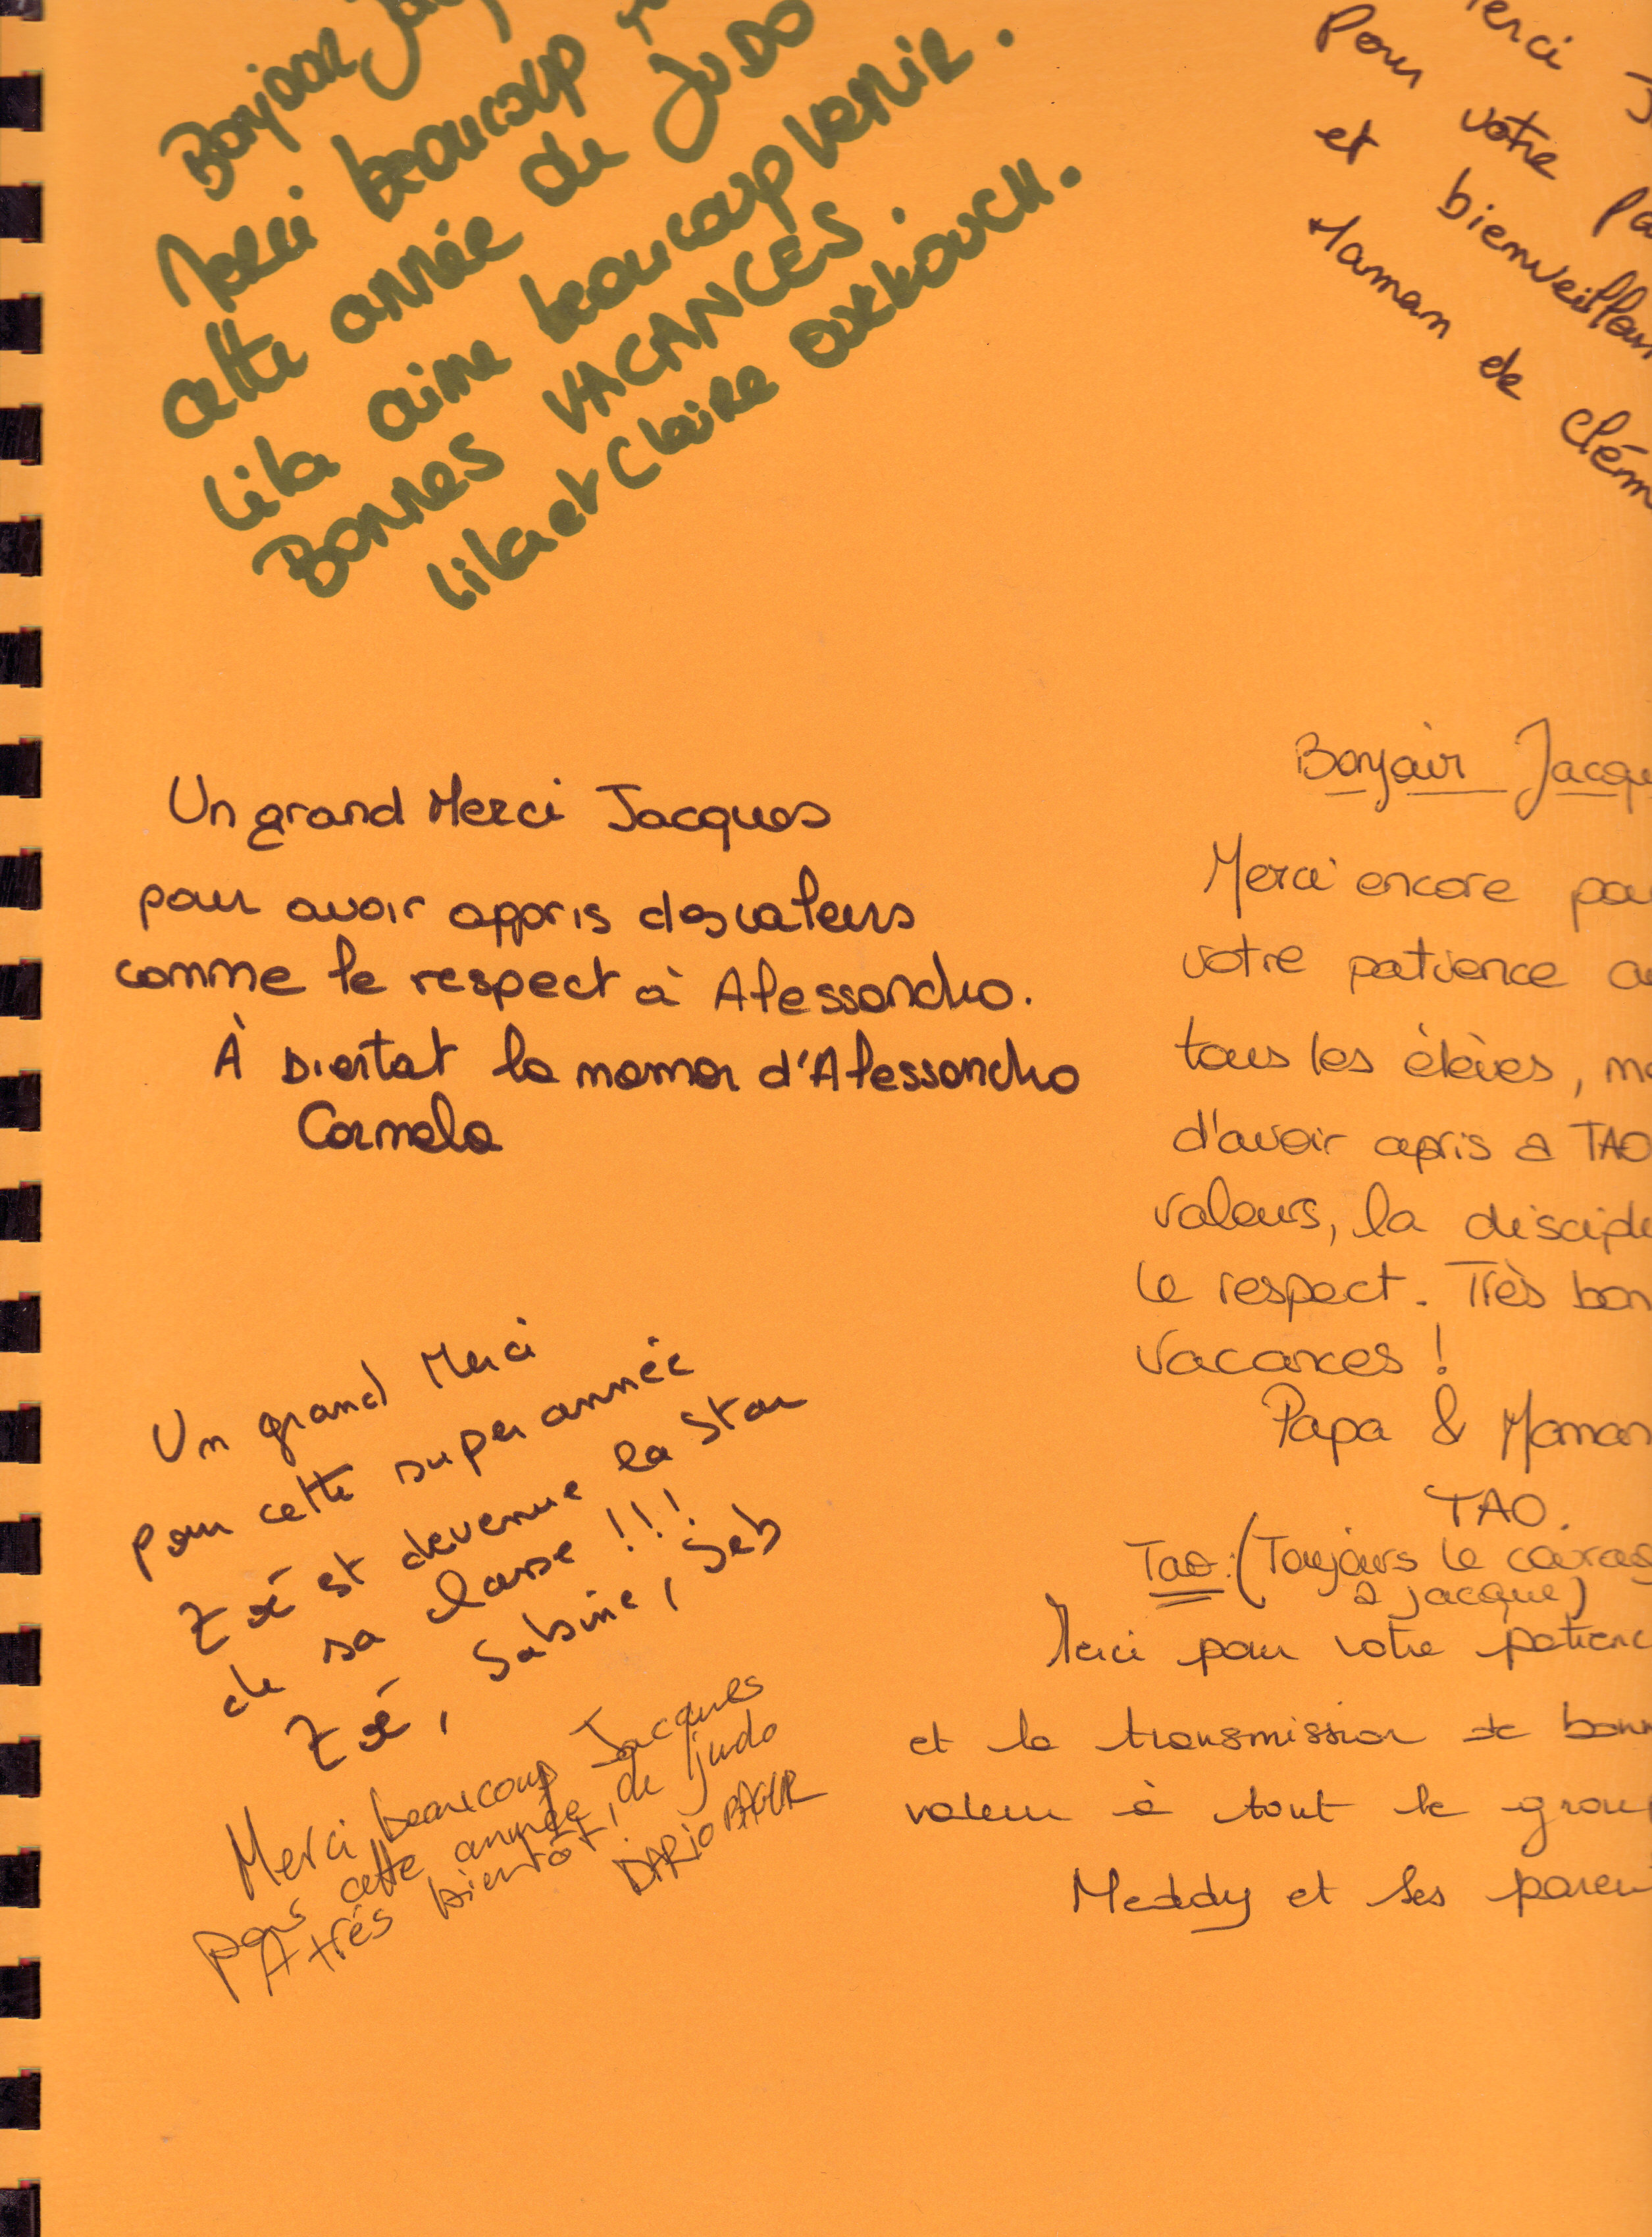 Bonjour
Merci beaucoup
cette année de JUDO
Lila aime beaucoup venir.
BONNES VACANCES.
Lila et Claire
erci J
Pour votre pa
et bienveillan
Maman de Clém
Un grand Merci Jacques
pour avoir appris des valeurs
comme le respect à Alessandro.
À Bientat la maman d'Alessandro
Carmela
Bonjour Jacqu
Merci encore pou
votre patience
tous les élèves, m
d'avoir apris a TAO
valeurs, la discipli
le respect. Très bon
vacances !
Papa & Maman
TAO.
Tao : (Toujours le courag
a jacque)
Merci pour votre patienc
et la transmission de bonn
valeur à tout le group
Meddy et ses paren
Un grand Merci
pour cette super année
Zoé est devenue la star
de sa classe !!!
Zoé, Sabine, Seb
Merci beaucoup Jacques
pour cette année de judo
A très bientôt !
DARIO